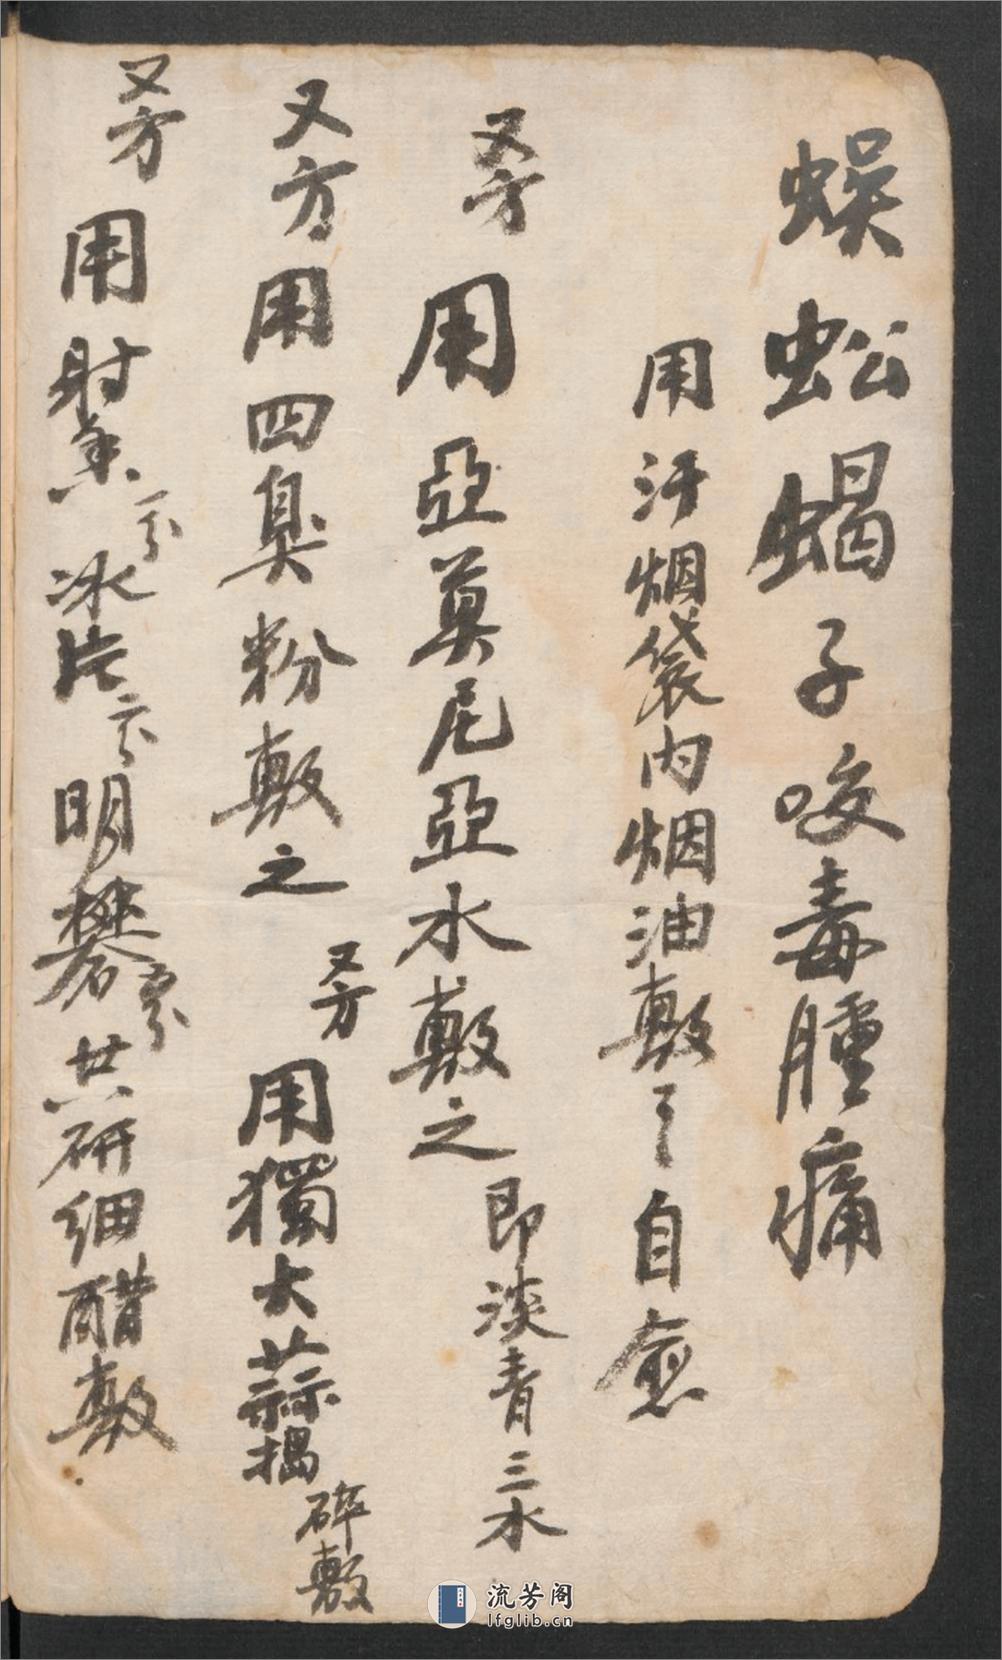 蜈蚣蝎子咬毒腫痛
用汙烟袋内烟油敷之自愈
又方 用亞莫尼亞水敷之 即淡青三水
又方用四臭粉敷之 又方 用獨大蒜搗碎敷
又方 用射香一分 冰片二分 明礬五分 共研细醋敷
流芳阁
lfglib.cn